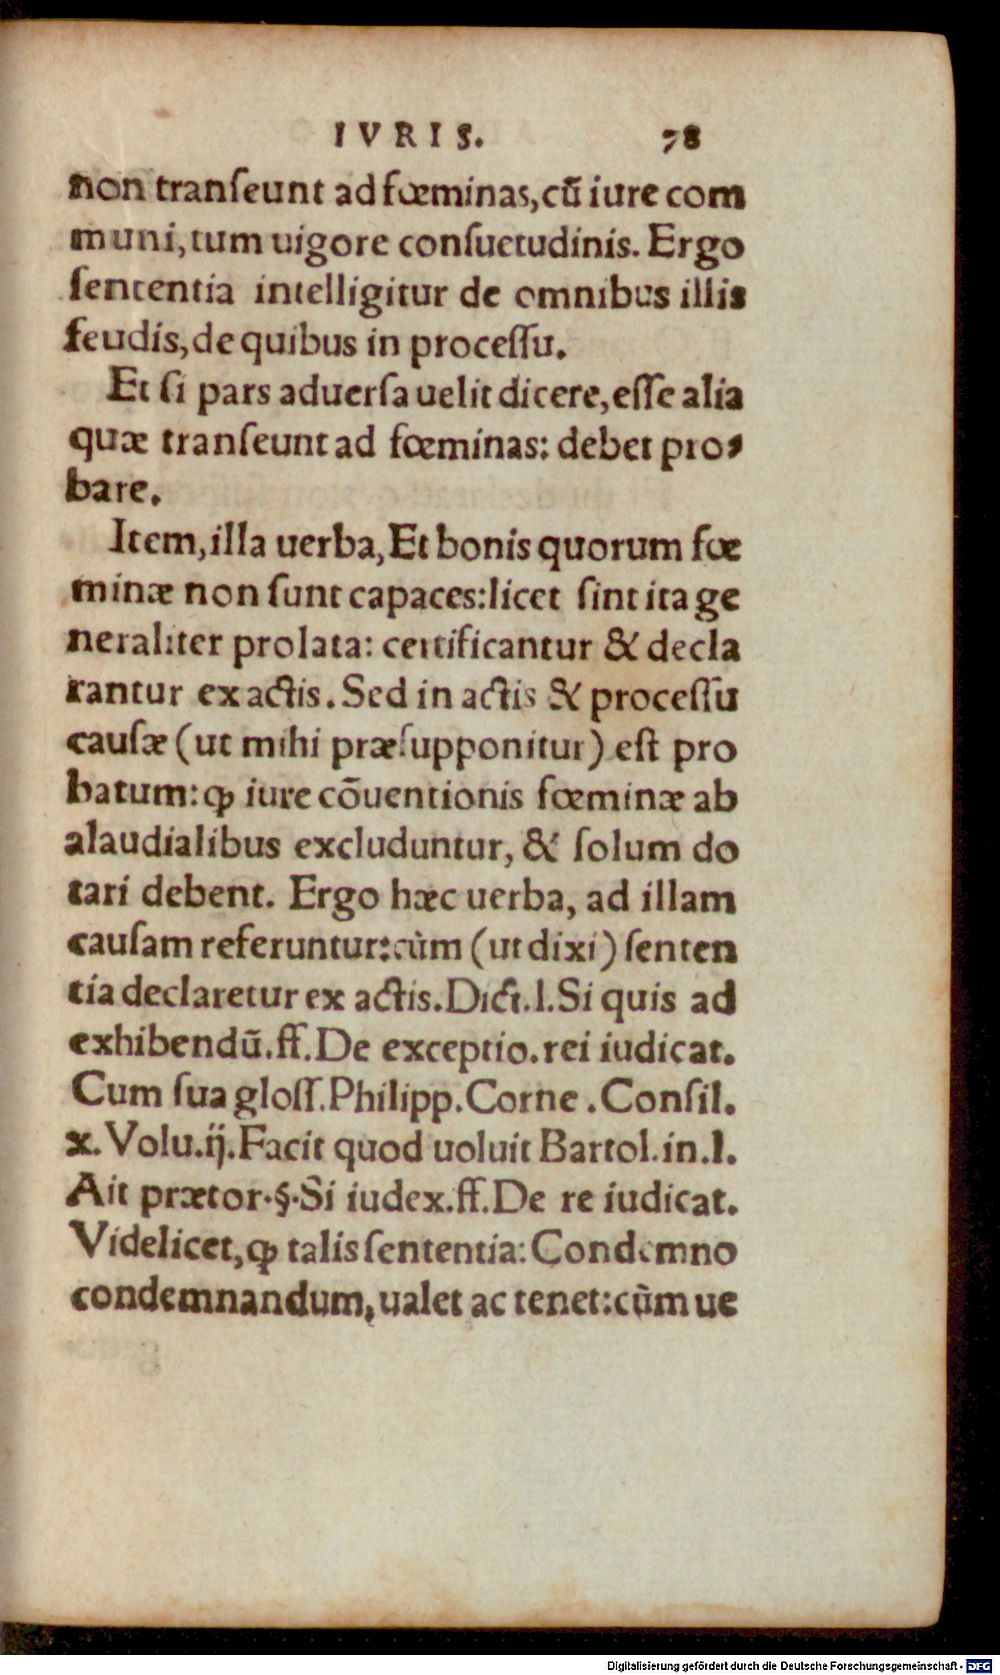 IVRIS. 78
non tranſeunt ad fœminas, cũ iure com
muni, tum uigore conſuetudinis. Ergo
ſententia intelligitur de omnibus illis
feudis, de quibus in proceſſu.
Et ſi pars aduerſa uelit dicere, eſſe alia
quæ tranſeunt ad fœminas: debet pro⸗
bare.
Item, illa uerba, Et bonis quorum fœ
minæ non ſunt capaces: licet ſint ita ge
neraliter prolata: certificantur & decla
rantur ex actis. Sed in actis & proceſſu
cauſæ (ut mihi præſupponitur) eſt pro
batum: ꝙ iure cõuentionis fœminæ ab
alaudialibus excluduntur, & ſolum do
tari debent. Ergo hæc uerba, ad illam
cauſam referuntur: cùm (ut dixi) ſenten
tia declaretur ex actis. Dict. l. Si quis ad
exhibendũ. ff. De exceptio. rei iudicat.
Cum ſua gloſſ. Philipp. Corne. Conſil.
x. Volu. ij. Facit quod uoluit Bartol. in. l.
Ait prætor. §. Si iudex. ff. De re iudicat.
Videlicet, ꝙ talis ſententia: Condemno
condemnandum, ualet ac tenet: cùm ue
Digitalisierung gefördert durch die Deutsche Forschungsgemeinschaft - DFG